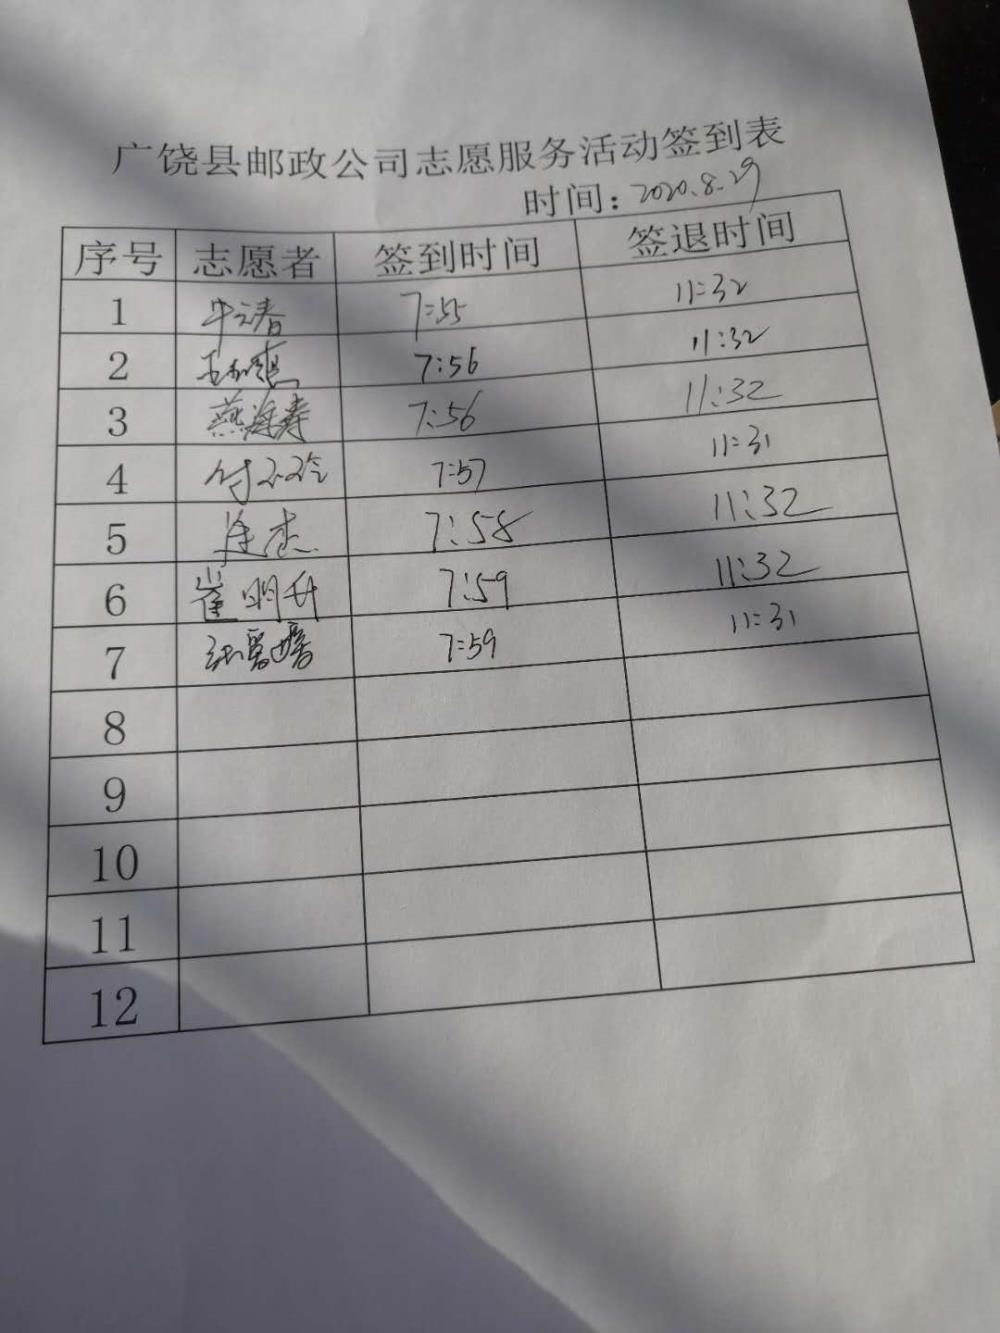 广饶县邮政公司志愿服务活动签到表
时间：2020.8.29
序号 志愿者 签到时间 签退时间
1 7:55 11:32
2 7:56 11:32
3 燕海寿 7:56 11:32
4 7:57 11:31
5 7:58 11:32
6 崔明升 7:59 11:32
7 7:59 11:31
8
9
10
11
12